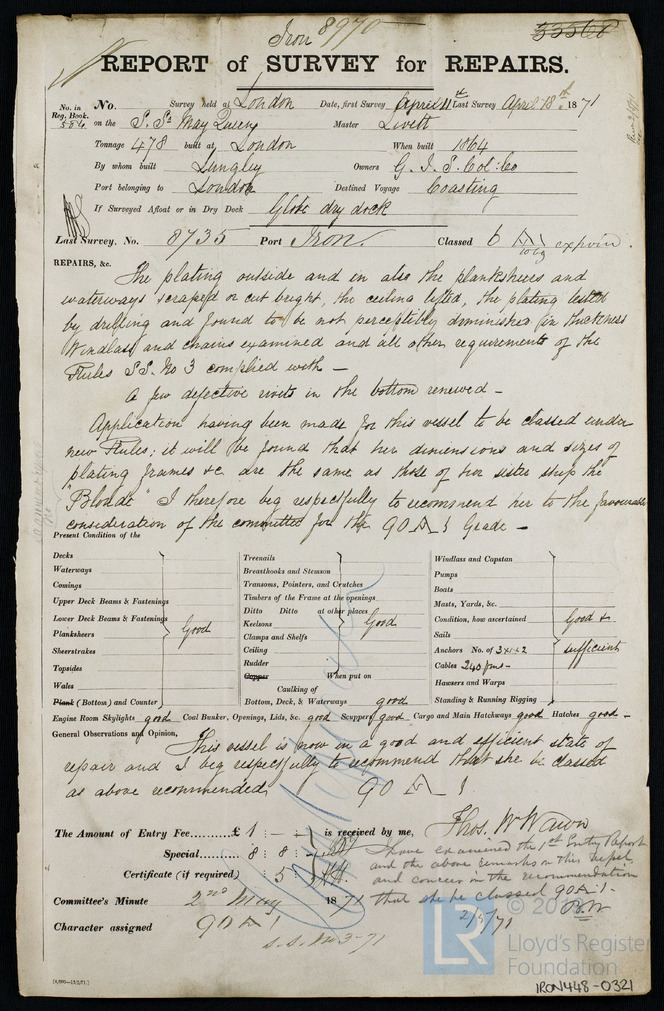 Iron 8970
33568
REPORT of SURVEY for REPAIRS.
No. in Reg. Book. 584 No. Survey held at London Date, first Survey April 11th Last Survey April 18th 1871
on the S. Sr May Queen Master Livett
Tonnage 478 built at London When built 1864
By whom built Lungley Owners G. I. S. Col: Co
Port belonging to London Destined Voyage Coasting
If Surveyed Afloat or in Dry Dock Globe dry dock
Last Survey. No. 8735 Port Iron. Classed 6 A expoin.
REPAIRS, &c.
The plating outside and in also the planksheers and
waterways scraped or cut bright, the ceiling lifted, the plating tested
by drilling and found to be not perceptibly diminished in thickness
Windlass and chains examined and all other requirements of the
Rules S.S. No 3 complied with —
A few defective rivets in the bottom renewed —
Application having been made for this vessel to be classed under
new Rules; it will be found that her dimensions and sizes of
plating frames &c are the same as those of her sister ship the
I therefore beg respectfully to recommend her to the favourable
consideration of the committee for the 90 A 1 Grade —
Present Condition of the
Decks
Waterways
Comings
Upper Deck Beams & Fastenings
Lower Deck Beams & Fastenings
Planksheers Good
Sheerstrakes
Topsides
Wales
Plank (Bottom) and Counter
Treenails
Breasthooks and Stemson
Transoms, Pointers, and Crutches
Timbers of the Frame at the openings
Ditto Ditto at other places
Keelsons Good
Clamps and Shelfs
Ceiling
Rudder
Copper When put on
Caulking of
Bottom, Deck, & Waterways good
Windlass and Capstan
Pumps
Boats
Masts, Yards, &c.
Condition, how ascertained Good &
Sails
Anchors No. of 3x1x2 sufficient
Cables 240 fms -
Hawsers and Warps
Standing & Running Rigging
Engine Room Skylights good Coal Bunker, Openings, Lids, &c. good Scuppers good Cargo and Main Hatchways good Hatches good —
General Observations and Opinion,
This vessel is now in a good and efficient state of
repair and I beg respectfully to recommend that she be classed
as above recommended 90 A 1
The Amount of Entry Fee......... £ 1 : — : — is received by me, Thos. W Wawn
Special........ 8 : 8 : —
Certificate (if required) : 5 :
I have examined the 1st Entry Report
and the above remarks on this vessel
and concur in the recommendation
that she be classed 90 A 1 -
2/5/71
Committee's Minute 2nd May 1871
Character assigned 90 A 1
S.S. No 3-71
LR
Lloyd's Register
Foundation
IRON448-0321